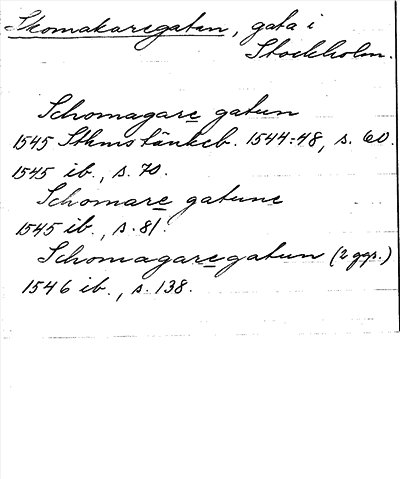 Skomakaregatan, gata i
Stockholm.
Schomagare gatun
1545 Sthms tänkeb. 1544-48, s. 60.
1545 ib., s. 70.
Schomare gatune
1545 ib., s. 81.
Schomagare gatun (2 ggr.)
1546 ib., s. 138.